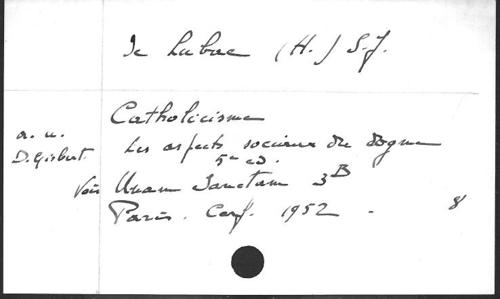 de Lubac (H.) S.J.
Catholicisme
Les aspects sociaux du dogme
5e éd.
a. u.
D. Gisbert.
Voir Unam Sanctam 3B
Paris. Cerf. 1952. 8